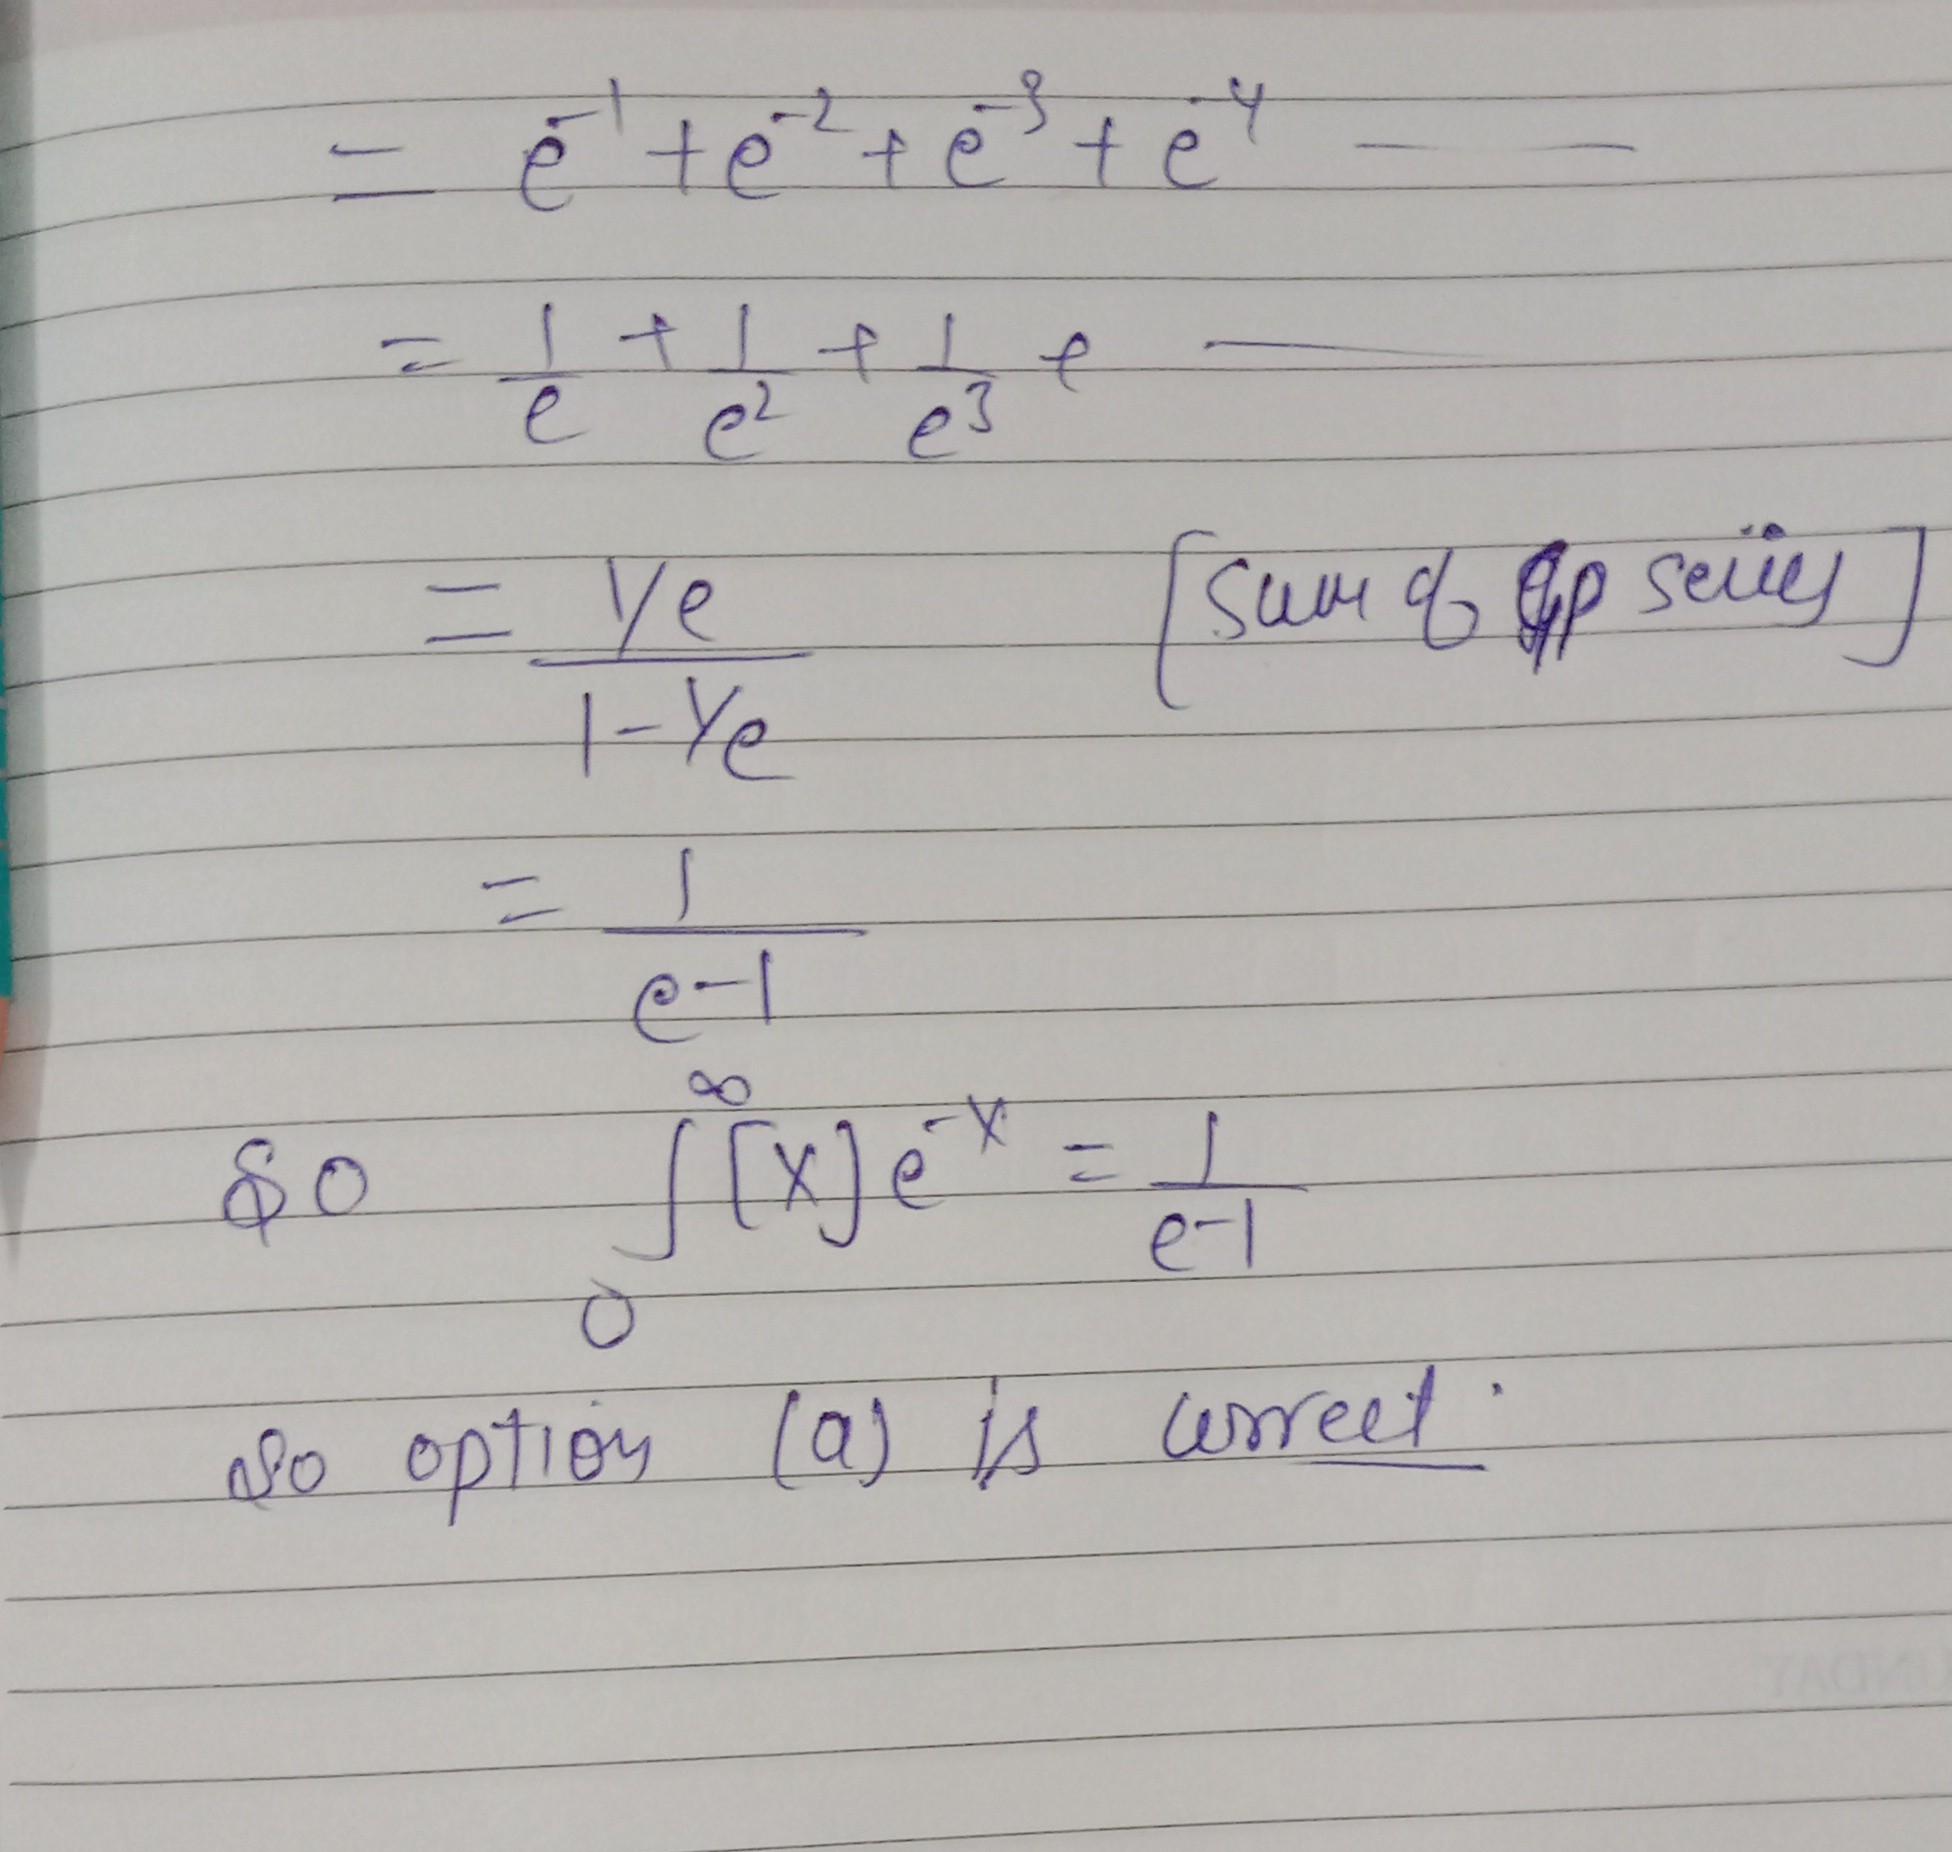 = e⁻¹ + e⁻² + e⁻³ + e⁻⁴ ——
= 1/e + 1/e² + 1/e³ + ——
= (1/e)/(1-1/e) [Sum of GP series]
= 1/(e-1)
So ∫₀^∞ [x] e⁻ˣ = 1/(e-1)
So option (a) is correct.
UNDAY